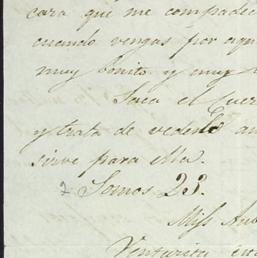 cara que me compadec
cuando vengas por aqu
muy bonito y muy
Saca el Cuer
y trata de an
sirve para ella.
2 Somos 23.
Miss
Venturita